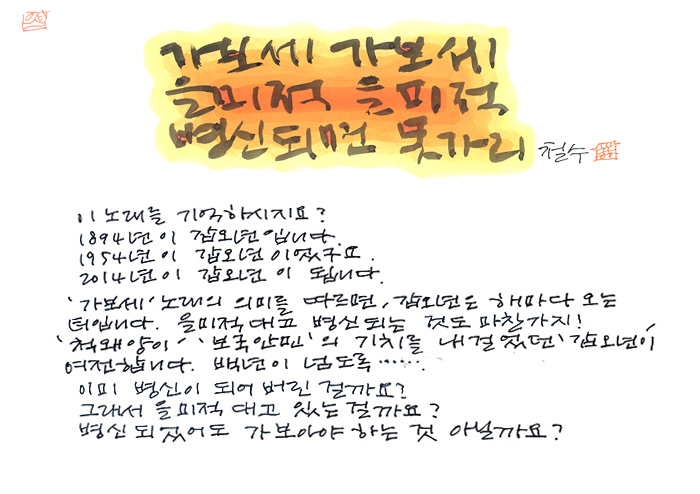 가보세 가보세
을미적 을미적
병신되면 못가리
철수
이 노래를 기억하시지요?
1894년이 갑오년입니다.
1954년이 갑오년이었구요.
2014년이 갑오년이 됩니다.
'가보세' 노래의 의미를 따르면, 갑오년은 해마다 오는
터입니다. 을미적대고 병신되는 것도 마찬가지!
'척왜양이' '보국안민'의 기치를 내걸었던 '갑오년'이
여전합니다. 백년이 넘도록……
이미 병신이 되어버린 걸까요?
그래서 을미적대고 있는 걸까요?
병신 되었어도 가보아야 하는 것 아닐까요?